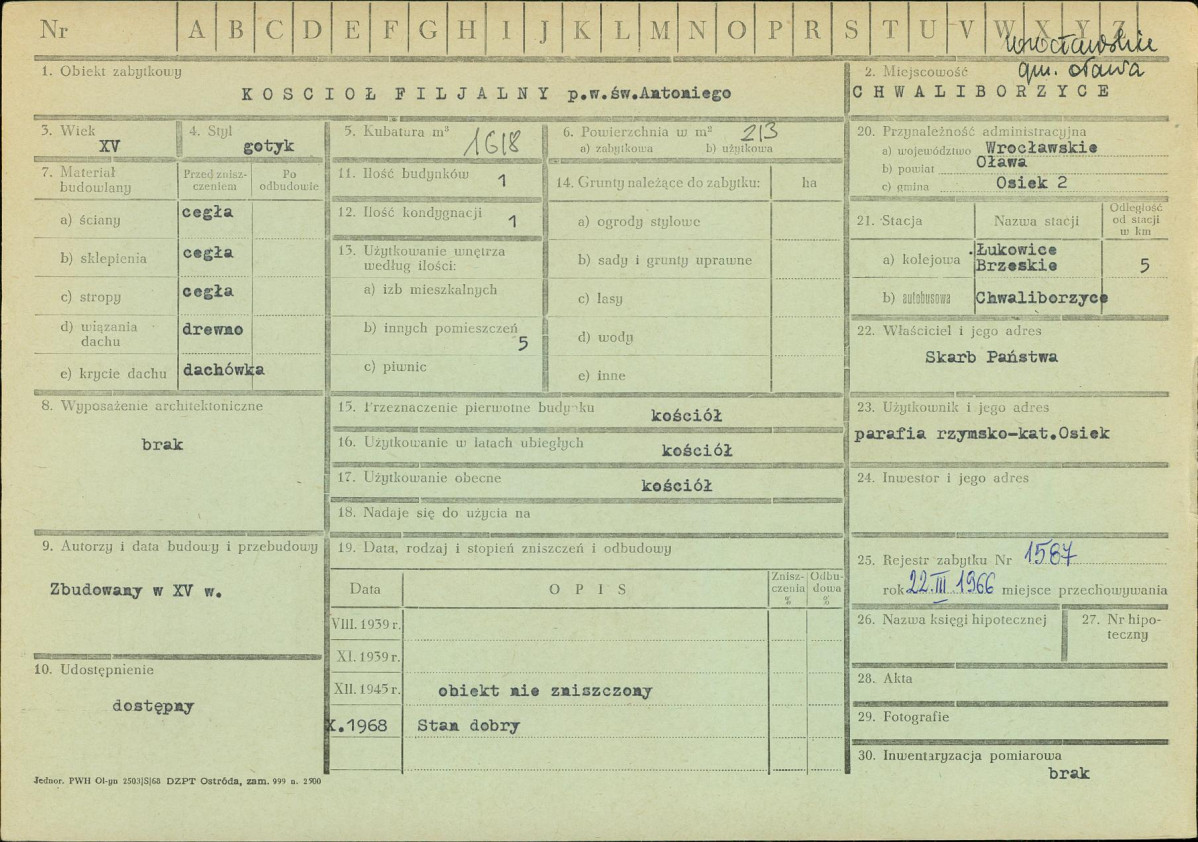 Nr A B C D E F G H I J K L M N O P R S T U V W X Y Z
wrocławskie
gm. oława
1. Obiekt zabytkowy
KOSCIOŁ FILJALNY p.w.św.Antoniego
2. Miejscowość
CHWALIBORZYCE
3. Wiek
XV
4. Styl
gotyk
5. Kubatura m³
1618
6. Powierzchnia w m² 213
a) zabytkowa b) użytkowa
7. Materiał budowlany
Przed znisz-
czeniem
Po
odbudowie
a) ściany cegła
b) sklepienia cegła
c) stropy cegła
d) wiązania dachu drewno
e) krycie dachu dachówka
11. Ilość budynków 1
12. Ilość kondygnacji 1
13. Użytkowanie wnętrza
według ilości:
a) izb mieszkalnych
b) innych pomieszczeń 5
c) piwnic
14. Grunty należące do zabytku: ha
a) ogrody stylowe
b) sady i grunty uprawne
c) lasy
d) wody
e) inne
20. Przynależność administracyjna
a) województwo Wrocławskie
b) powiat Oława
c) gmina Osiek 2
21. Stacja Nazwa stacji
Odległość
od stacji
w km
a) kolejowa Łukowice
Brzeskie 5
b) autobusowa Chwaliborzyce
22. Właściciel i jego adres
Skarb Państwa
8. Wyposażenie architektoniczne
brak
15. Przeznaczenie pierwotne budynku kościół
16. Użytkowanie w latach ubiegłych kościół
17. Użytkowanie obecne kościół
18. Nadaje się do użycia na
23. Użytkownik i jego adres
parafia rzymsko-kat.Osiek
24. Inwestor i jego adres
9. Autorzy i data budowy i przebudowy
Zbudowany w XV w.
10. Udostępnienie
dostępny
19. Data, rodzaj i stopień zniszczeń i odbudowy
Data OPIS
Znisz-
czenia
%
Odbu-
dowa
%
VIII. 1939 r.
XI. 1939 r.
XII. 1945 r. obiekt nie zniszczony
X.1968 Stan dobry
25. Rejestr zabytku Nr 1587
rok 22.III.1966 miejsce przechowywania
26. Nazwa księgi hipotecznej
27. Nr hipo-
teczny
28. Akta
29. Fotografie
30. Inwentaryzacja pomiarowa
brak
Jednor. PWH Ol-yn 2503/S/68 DZPT Ostróda, zam. 999 n. 2500